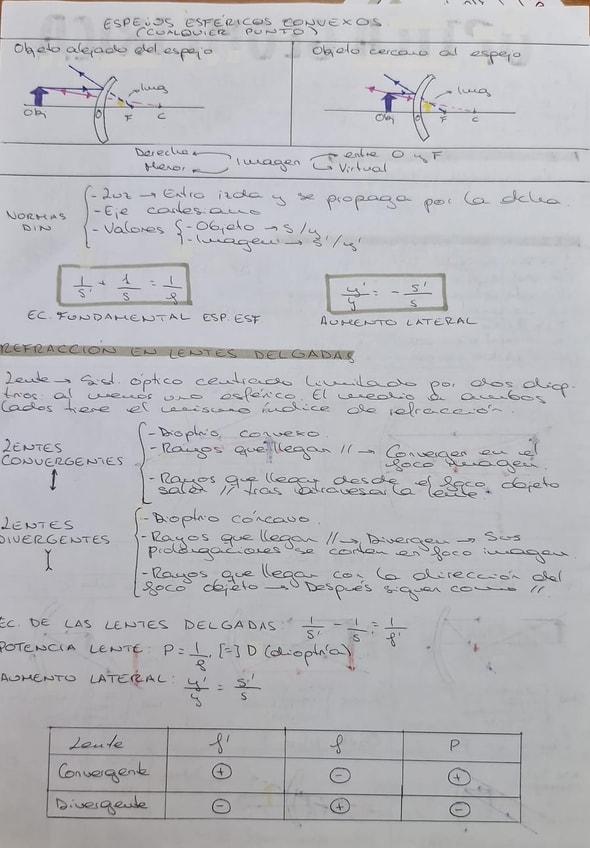 ESPEJOS ESFÉRICOS CONVEXOS
(CUALQUIER PUNTO)
Objeto alejado del espejo
Objeto cercano al espejo
Obj
O
F
C
Imag
Obj
O
F
C
Imag
Derecha
Menor
Imagen
entre O y F
Virtual
NORMAS DIN
- Luz → Entra izda y se propaga por la dcha.
- Eje cartesiano
- Valores
- Objeto → s/y
- Imagen → s'/y'
1/s' + 1/s = 1/f
y'/y = - s'/s
EC. FUNDAMENTAL ESP. ESF
AUMENTO LATERAL
REFRACCIÓN EN LENTES DELGADAS
Lente → Sist. óptico centrado limitado por dos diop-
trios, al menos uno esférico. El medio a ambos
lados tiene el mismo índice de refracción.
LENTES
CONVERGENTES
- Dioptrio convexo.
- Rayos que llegan // → Convergen en el
foco imagen.
- Rayos que llegan desde el foco objeto
salen // tras atravesar la lente.
LENTES
DIVERGENTES
- Dioptrio cóncavo.
- Rayos que llegan // → Divergen → Sus
prolongaciones se cortan en foco imagen.
- Rayos que llegan con la dirección del
foco objeto → Después siguen como //.
EC. DE LAS LENTES DELGADAS: 1/s' - 1/s = 1/f'
POTENCIA LENTE: P = 1/f' [=] D (dioptría)
AUMENTO LATERAL: y'/y = s'/s
Lente f' f P
Convergente + - +
Divergente - + -